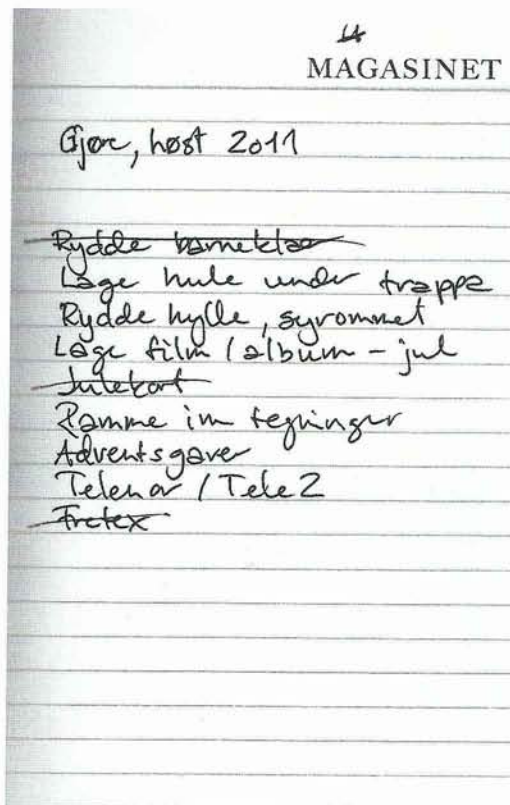 MAGASINET
Gjøre, høst 2011
Rydde barneklær
Lage hule under trappa
Rydde hylle, syrommet
Lage film / album - jul
Julekort
Ramme inn tegninger
Adventsgaver
Telenor / Tele2
Fretex